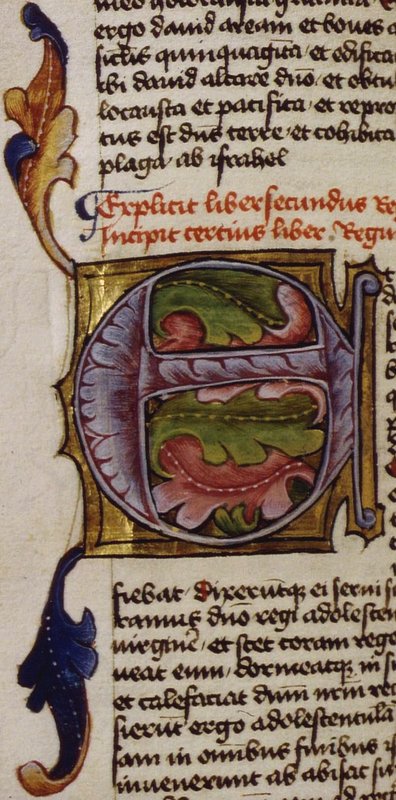 ergo dauid aream et boues
siclis quinquaginta et edifica
ibi dauid altare dno et obtu
locausta et pacifica et repro
tus est dns terre et cohibita
plaga ab israhel
Explicit liber secundus Re
Incipit tercius liber Regu
E
fiebat Dixerutq ei serui s
ramus dno regi adolescen
uirgine et stet coram rege
ueat eum dormeatq in si
et calefaciat dnm nrm re
sierut ergo adolescentula
iam in omnibus finibus is
inuenerunt ab abisac su